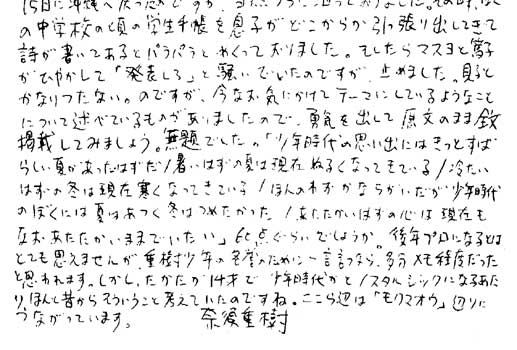 15日に沖縄へ戻った
の中学校の頃の学生手帳を息子がどこからか引っ張り出してきて
詩が書いてあるとパラパラとめくっておりました。そしたらマスヨと篤子
がひやかして「発表しろ」と騒いでいたのですが、止めました。見ると
かなりつたない。のですが、今なお気にかけてテーマにしているようなこと
について述べているものがありましたので、勇気を出して原文のまま
掲載してみましょう。無題でした。「少年時代の思い出にはきっとすば
らしい夏があったはずだ/暑いはずの夏は現在ぬるくなってきている/冷たい
はずの冬は現在寒くなってきている/ほんのわずかならがいだが少年時代
のぼくには夏はあつく冬はつめたかった/あたたかいはずの心は現在も
なおあたたかいままでいたい」60点ぐらいでしょうか。後年プロになるとは
とても思えませんが、重樹少年の名誉のために一言言うなら、多分メモ程度だった
と思われます。しかし、たかだか14才で少年時代かと/スタルジックになるあた
り、ほんと昔からそういうこと考えていたのですね。ここら辺は「モクマオウ」辺りに
つながっています。 奈須重樹